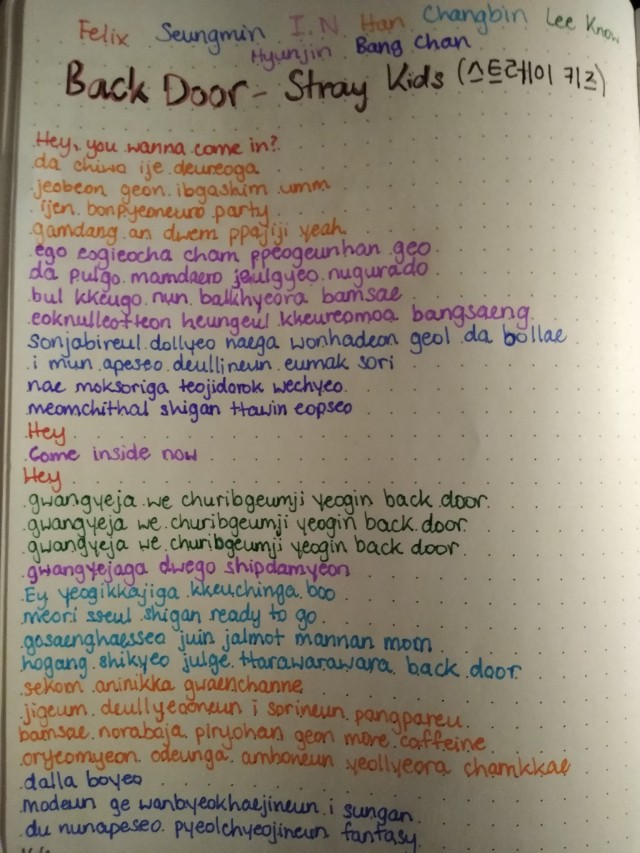 Felix Seungmin I.N Han Changbin Lee Know
Hyunjin Bang Chan
Back Door - Stray Kids (스트레이 키즈)
Hey, you wanna come in?
da chiwo ije deureoga
jeobeon geon ibgashim umm
ijen bonpyeoneuro party
gamdang an dwem ppajiji yeah
ego eogieocha cham ppeogeunhan geo
da pulgo mamdaero jeulgyeo nugurado
bul kkeugo nun balkhyeora bamsae
eoknulleotteon heungeul kkeureomoa bangsaeng
sonjabireul dollyeo naega wonhadeon geol da bollae
i mun apeseo deullineun eumak sori
nae moksoriga teojidorok wechyeo
meomchithal shigan ttawin eopseo
Hey
Come inside now
Hey
gwangyeja we churibgeumji yeogin back door
gwangyeja we churibgeumji yeogin back door
gwangyeja we churibgeumji yeogin back door
gwangyejaga dwego shipdamyeon
Ey yeogikkajiga kkeuchinga boo
meori sseul shigan ready to go
gosaenghaesseo juin jalmot mannan mom
hogang shikyeo julge ttarawarawara back door
sekom aninikka gwaenchanne
jigeum deullyeooneun i sorineun pangpareu
bamsae norabaja piryohan geon more caffeine
oryeomyeon odeunga amhoneun yeollyeora chamkkae
dalla boyeo
modeun ge wanbyeokhaejineun i sungan
du nunapeseo pyeolchyeojineun fantasy